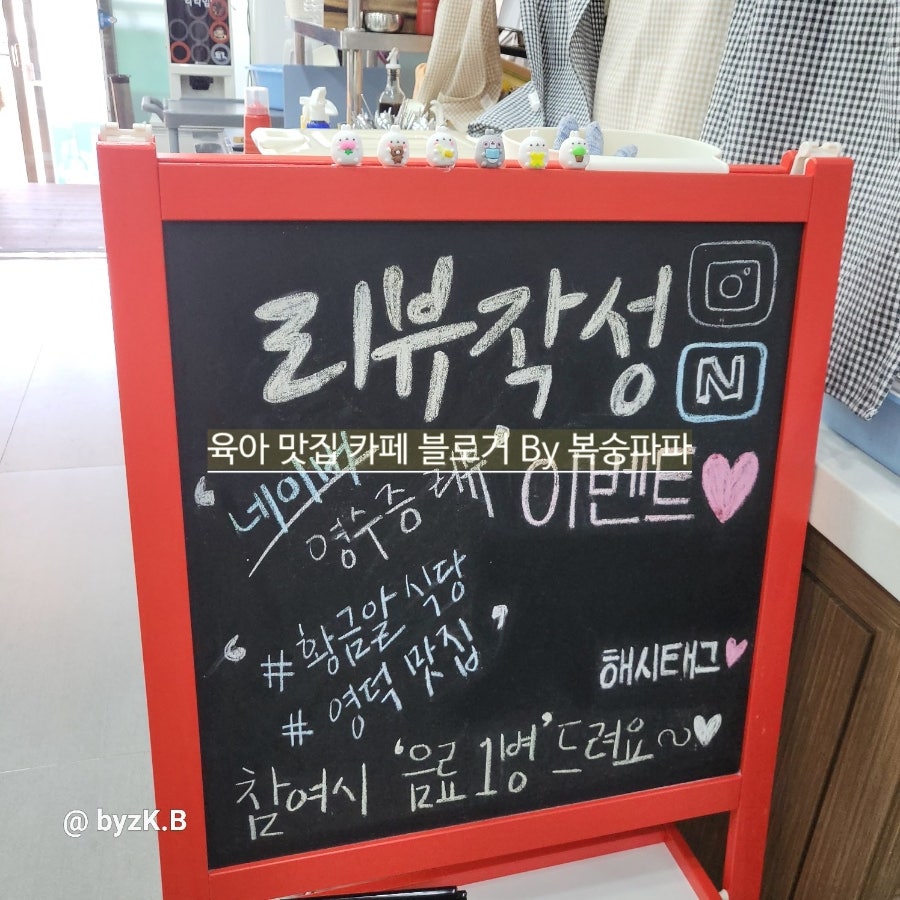 리뷰작성
N
육아 맛집 카페 블로거 By 복숭파파
'네이버
영수증
이벤트
'#황금알 식당
#영덕 맛집'
해시태그
참여시 '음료 1병' 드려요~
@ byzK.B